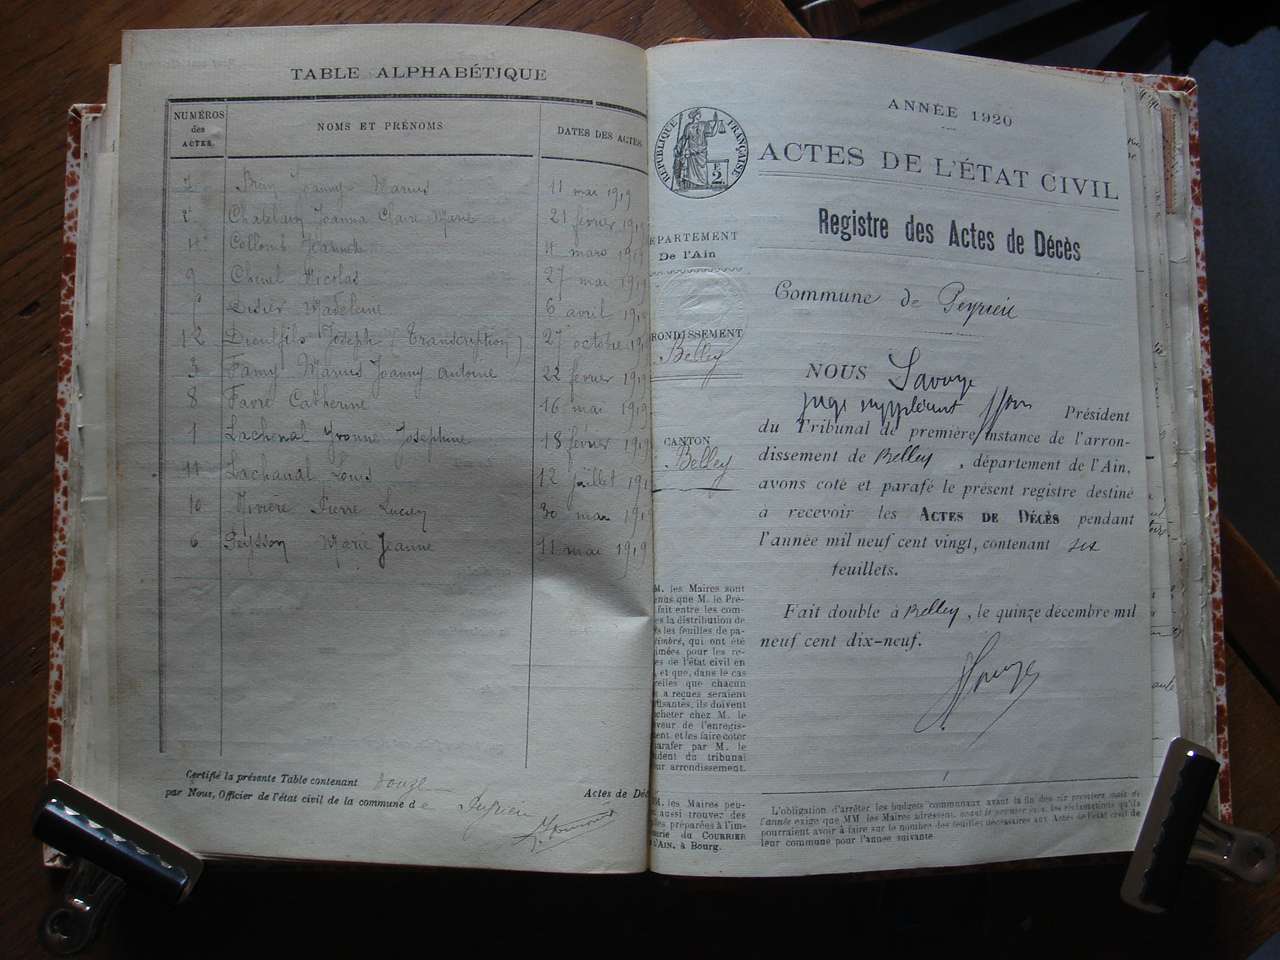 TABLE ALPHABÉTIQUE
NUMÉROS des ACTES.
NOMS ET PRÉNOMS
DATES DES ACTES
Joanny Marius 11 mai 1919
2 Chatelain Joanna Claire Marie 21 février 1919
4 Collomb Jeannette 4 mars 1919
9 Chenel Nicolas 27 mai 1919
Didier Madeleine 6 avril 1919
12 Dieutfils Joseph (Transcription) 27 octobre 1919
3 Famy Marius Joanny Antoine 22 février 1919
8 Favre Catherine 16 mai 1919
1 Lachenal Yvonne Josephine 18 février 1919
11 Lachanal Louis 12 juillet 191
10 Rivière Pierre Lucien 30 mai 191
6 Peysson Marie Jeanne 11 mai 1919
Certifié la présente Table contenant douze Actes de Déc
par Nous, Officier de l'état civil de la commune de Peyrieu
ANNÉE 1920
RÉPUBLIQUE FRANÇAISE
2
ACTES DE L'ÉTAT CIVIL
Registre des Actes de Décès
ÉPARTEMENT
De l'Ain
RONDISSEMENT
Belley
CANTON
Belley
Commune de Peyrieu
NOUS Savoye
juge suppléant ffon Président
du Tribunal de première instance de l'arron-
dissement de Belley, département de l'Ain,
avons coté et parafé le présent registre destiné
a recevoir les ACTES DE DÉCÈS pendant
l'année mil neuf cent vingt, contenant six
feuillets.
Fait double à Belley, le quinze décembre mil
neuf cent dix-neuf.
M. les Maires sont
enus que M. le Pré-
fait entre les com-
es la distribution de
s les feuilles de pa-
timbré, qui ont été
imées pour les re-
es de l'état civil en
, et que, dans le cas
elles que chacun
a reçues seraient
ffisantes, ils doivent
cheter chez M. le
veur de l'enregis-
ent, et les faire coter
parafer par M. le
ident du tribunal
ur arrondissement.
M. les Maires peu-
aussi trouver des
es préparées à l'im-
erie du COURRIER
'AIN, à Bourg.
L'obligation d'arrêter les budgets communaux avant la fin des six premiers mois de
l'année exige que MM. les Maires adressent, avant le premier les réclamations qu'ils
pourraient avoir à faire sur le nombre des feuilles nécessaires aux Actes de l'état civil de
leur commune pour l'année suivante